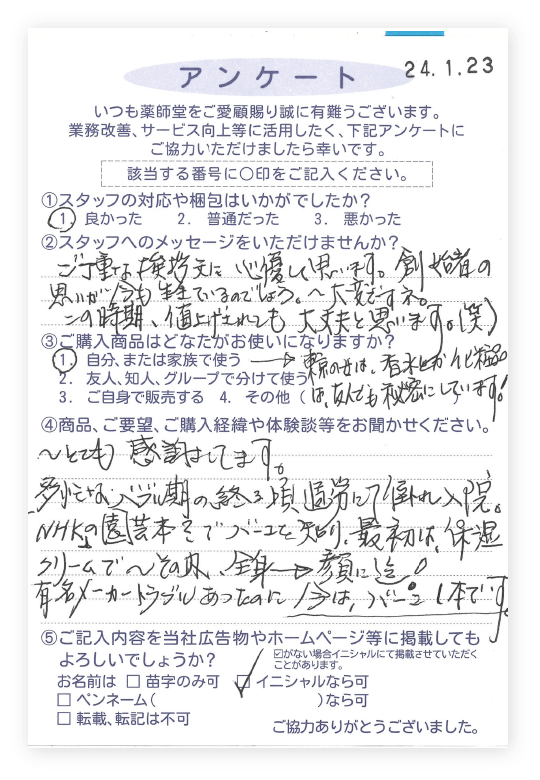 24.1.23
アンケート
いつも薬師堂をご愛顧賜り誠に有難うございます。
業務改善、サービス向上等に活用したく、下記アンケートに
ご協力いただけましたら幸いです。
該当する番号に〇印をご記入ください。
①スタッフの対応や梱包はいかがでしたか?
1. 良かった 2. 普通だった 3. 悪かった
②スタッフへのメッセージをいただけませんか?
ご丁重な挨拶文に心優しく思います。創始者の
思いが今も生きているのでしょう。〜大変ですネ。
この時期、値上げされても大丈夫と思います。(笑)
③ご購入商品はどなたがお使いになりますか?
1. 自分、または家族で使う → 東京の女は、有名とか化粧品
2. 友人、知人、グループで分けて使う
3. ご自身で販売する 4. その他 ( は、なんでも秘密にしています!
④商品、ご要望、ご購入経緯や体験談等をお聞かせください。
〜とても 感謝してます。
多忙なバブル期の終る頃 過労にて倒れ入院。
NHKの園芸本でバーユを知り、最初は、保湿
クリームで〜その内、全身→顔に迄!
有名メーカートラブルあったのに今は、バーユ1本です。
⑤ご記入内容を当社広告物やホームページ等に掲載しても
よろしいでしょうか?
☑がない場合イニシャルにて掲載させていただく
ことがあります。
お名前は □ 苗字のみ可 ☑ イニシャルなら可
□ ペンネーム( )なら可
□ 転載、転記は不可
ご協力ありがとうございました。